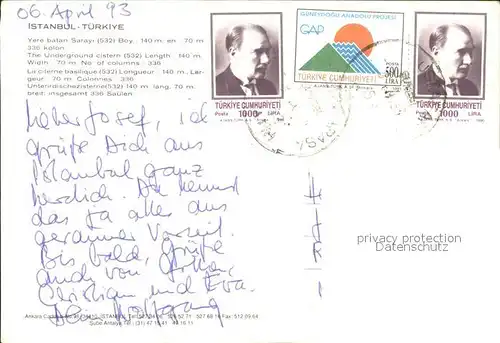 06. April 93
İSTANBUL-TÜRKİYE
Yere batan Sarayı (532) Boy, 140 m. en 70 m
336 kolon
The Underground cistern (532) Length 140 m.
Width 70 m No of columns 336
La citerne basilique (532) Longueur 140 m. Lar-
geur. 70 m. Colonnes 336
Unterirdischezisterne (532) 140 m lang, 70 m.
breit; insgesamt 336 Säulen
TÜRKİYE CUMHURİYETİ
Posta 1000 LİRA
GÜNEYDOĞU ANADOLU PROJESİ
GAP
TÜRKİYE CUMHURİYETİ
500 LİRA
TÜRKİYE CUMHURİYETİ
Posta 1000 LİRA
Lieber Josef, ich
grüße Dich aus
Istanbul ganz
herzlich. Du kennst
das ja alles aus
grauer Vorzeit.
Bis bald, Grüße
auch von
Christian und Eva.
Dein Wolfgang
privacy protection
watermark
Ankara İSTANBUL Tel: 527 68 Fax: 512 09 64
Şube Antalya Tel: (31) 47 18 41 - 48 16 11